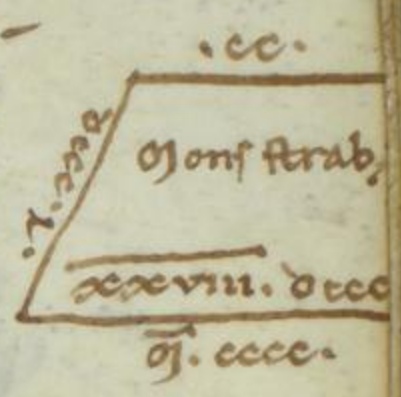 .cc.
dccc.l.
Monſ ſtrab,
x̅x̅v̅i̅i̅i̅. dccc
M̅. cccc.